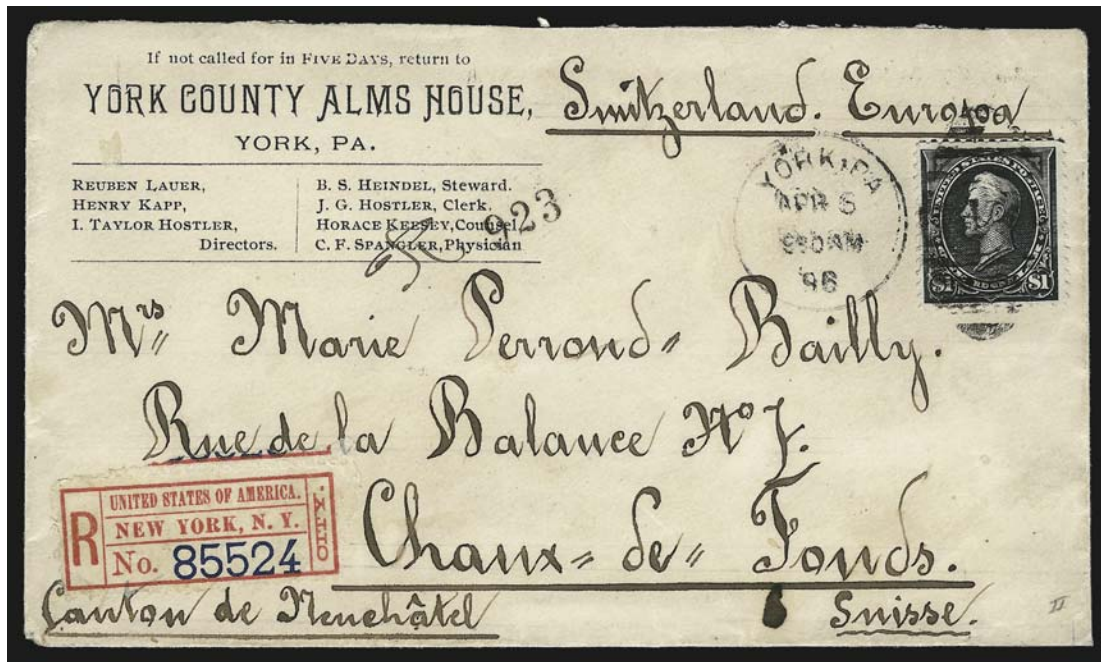 If not called for in FIVE DAYS, return to
YORK COUNTY ALMS HOUSE,
YORK, PA.
REUBEN LAUER,
HENRY KAPP,
I. TAYLOR HOSTLER,
Directors.
B. S. HEINDEL, Steward.
J. G. HOSTLER, Clerk.
HORACE KEESEY, Counsel.
C. F. SPANGLER, Physician
R 923
Switzerland. Europa
YORK, PA
APR 6
AM
96
$1 $1
Mrs Marie Perroud= Bailly.
Rue de la Balance No 7.
Chaux= de= Fonds.
Canton de Neuchâtel
Suisse.
R
UNITED STATES OF AMERICA.
NEW YORK, N. Y.
No. 85524
CITY.
II